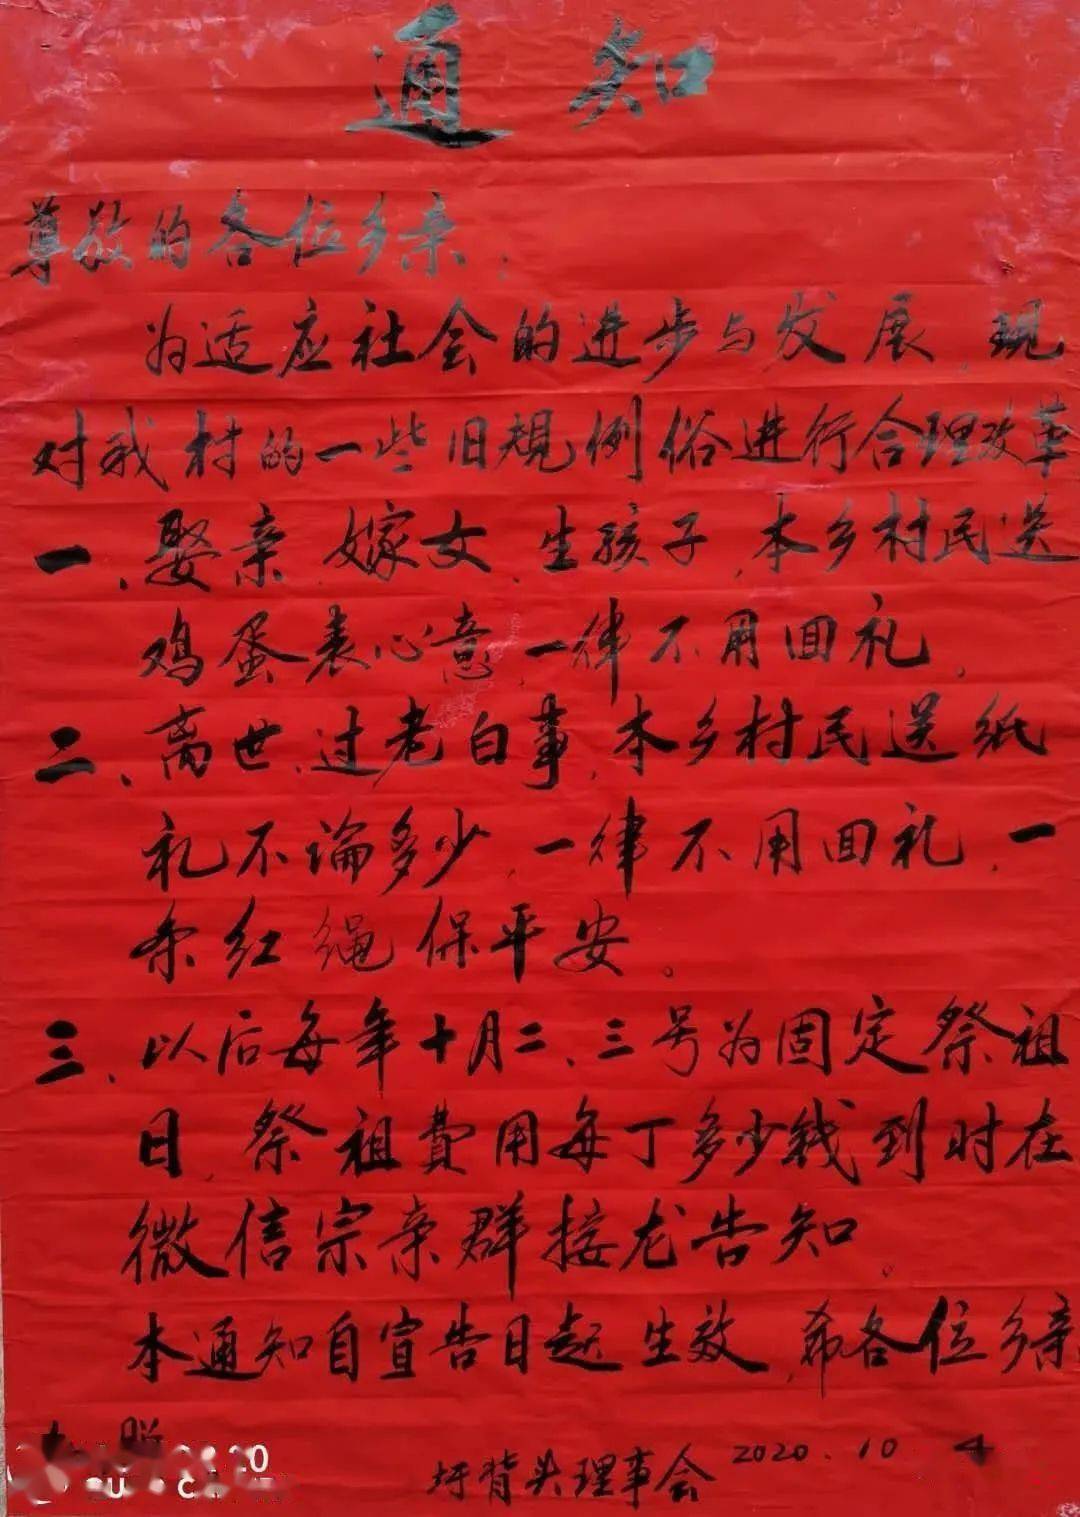 通知
尊敬的各位乡亲：
为适应社会的进步与发展，现
对我村的一些旧规例俗进行合理改革
一、娶亲、嫁女、生孩子，本乡村民送
鸡蛋表心意，一律不用回礼，
二、离世、过老白事，本乡村民送纸
礼不论多少，一律不用回礼，一
条红绳保平安。
三、以后每年十月二、三号为固定祭祖
日，祭祖费用每丁多少钱到时在
微信宗亲群接龙告知。
本通知自宣告日起生效，希各位乡亲
圩背头理事会 2020.10 4